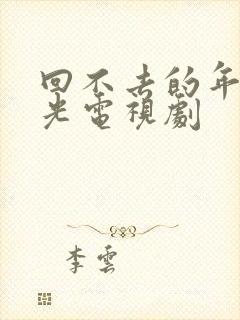 回不去的年
光電視劇
李雲